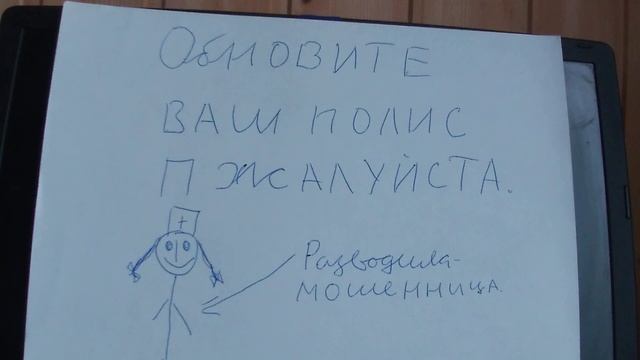 Обновите
ваш полис
пжалуйста.
Разводила-
мошенница.